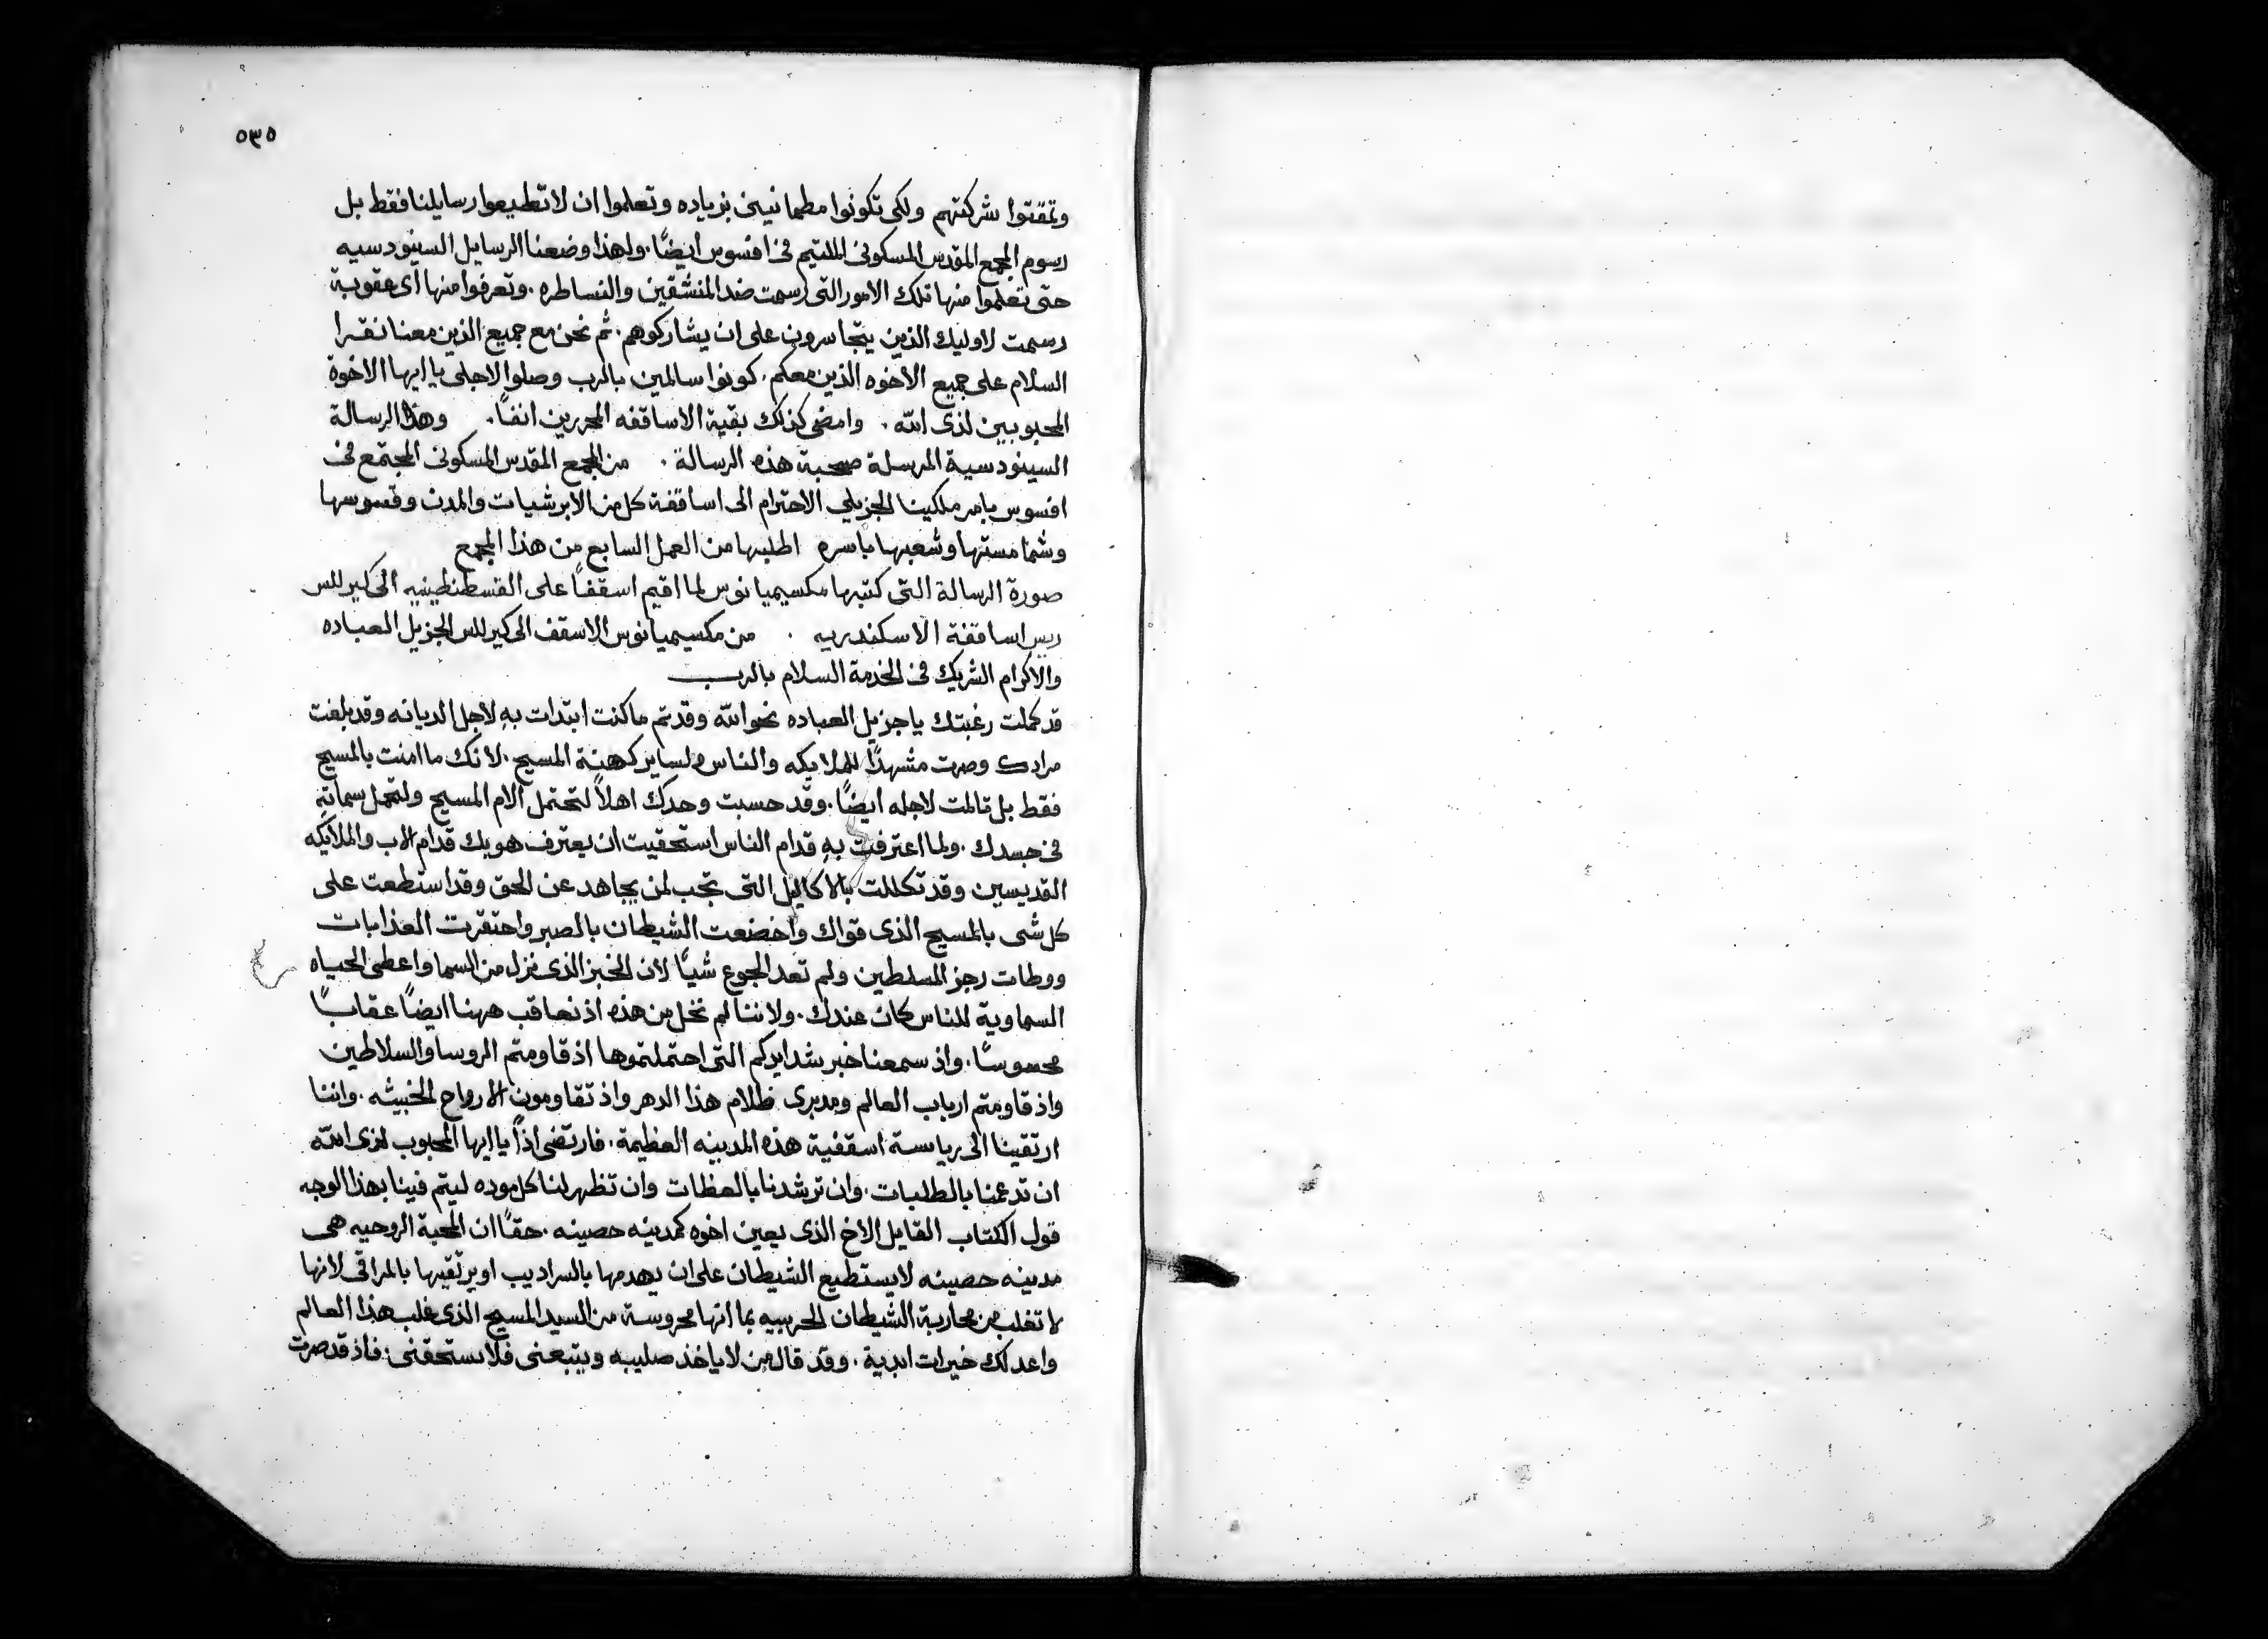 ٥٣٥
وتمقتوا شركتهم ولكى تكونوا مطمانيين بزياده وتعلموا ان لا تطيعوا رسايلنا فقط بل
رسوم المجمع المقدس المسكونى الملتيم فى افسوس أيضًا. ولهذا وضعنا الرسايل السينودسيه
حتى تعلموا منها تلك الامور التى رسمت ضد المنشقين والنساطره. وتعرفوا منها أى عقوبة
رسمت لاوليك الذين يتجاسرون على ان يشاركوهم. ثم نحن مع جميع الذين معنا نقرا
السلام على جميع الأخوه الذين معكم. كونوا سالمين بالرب وصلوا لاجلى يا ايها الاخوة
المحبوبين لذى الله. وامضى كذلك بقية الاساقفه المحررين انفًا. وهذا الرسالة
السينودسية المرسلة صحبة هذه الرسالة. من المجمع المقدس المسكونى المجتمع فى
افسوس بامر ملكينا الجزيلي الاحترام الى اساقفة كل من الابرشيات والمدن وقسوسها
وشمامستها وشعبها باسره اطلبها من العمل السابع من هذا المجمع
صورة الرسالة التى كتبها مكسيميانوس لما اقيم اسقفًا على القسطنطينيه الى كيرللس
رييس اساقفة الاسكندريه. من مكسيميانوس الاسقف الى كيرللس الجزيل العباده
والاكرام الشريك فى الخدمة السلام بالرب
قد كملت رغبتك يا جزيل العباده نحو الله وقد تم ما كنت ابتدات بهِ لاجل الديانه وقد بلغت
مرادك وصرت مشهدًا للملايكه والناس ولساير كهنة المسيح. لانك ما امنت بالمسيح
فقط بل تالمت لاجله ايضًا. وقد حسبت وحدك اهلاً لتحتمل الام المسيح ولتحمل سماتهِ
فى جسدك. ولما اعترفت بهِ قدام الناس استحقيت ان يعترف هو بك قدام الاب والملايكه
القديسين وقد تكللت بالاكاليل التى تجب لمن يجاهد عن الحق وقد استطعت على
كل شى بالمسيح الذى قواك واخضعت الشيطان بالصبر واحتقرت العذابات
ووطات رجز المسلطين ولم تعد الجوع شيًا لان الخبز الذى نزل من السما واعطى الحياه
السماوية للناس كان عندك. ولاننا لم نخل من هذه اذ نعاقب ههنا ايضًا عقابًا
محسوسًا. واذ سمعنا خبر شدايدكم التى احتملتموها اذ قاومتم الروسا والسلاطين
واذ قاومتم ارباب العالم ومدبرى ظلام هذا الدهر واذ تقاومون الارواح الخبيثه. واننا
ارتقينا الى رياسة اسقفية هذه المدينه العظيمة. فارتضى اذًا يا ايها المحبوب لذى الله
ان تدعمنا بالطلبات. وان ترشدنا بالعظات وان تظهر لنا كل موده ليتم فينا بهذا الوجه
قول الكتاب القايل الاخ الذى يعين اخوه كمدينه حصينه. حقًا ان المحبة الروحيه هى
مدينه حصينه لا يستطيع الشيطان على ان يهدمها بالسراديب او يرتقيها بالمراقى لانها
لا تغلب من محاربة الشيطان الحربيه بما انها محروسة من السيد المسيح الذى غلب هذا العالم
واعد لك خيرات ابدية. وقد قال من لا ياخذ صليبه ويتبعنى فلا يستحقنى. فاذ قد صرت